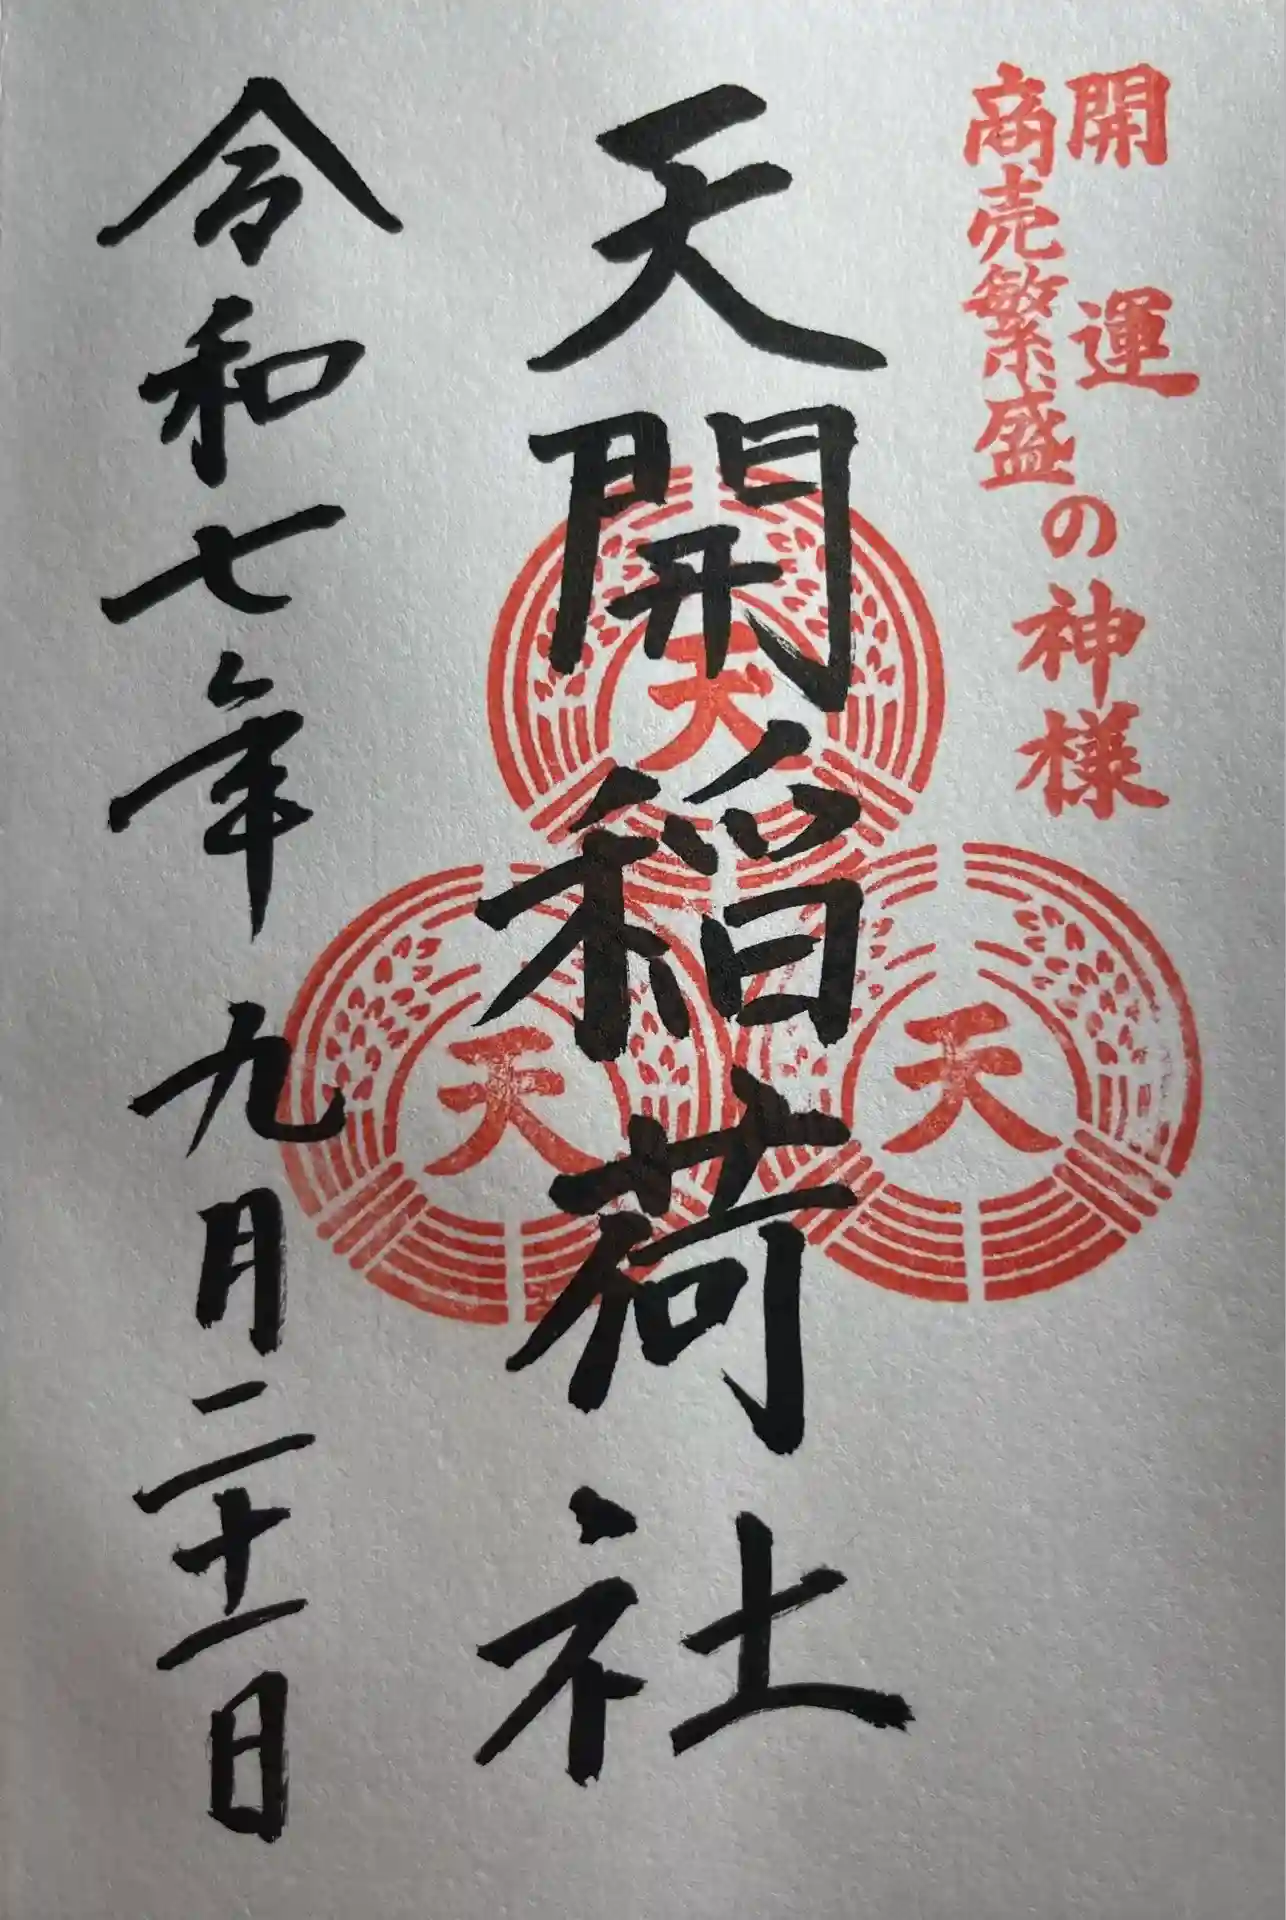 開運
商売繁盛
の神様
天開稲荷社
天
天
天
令和七年九月二十一日